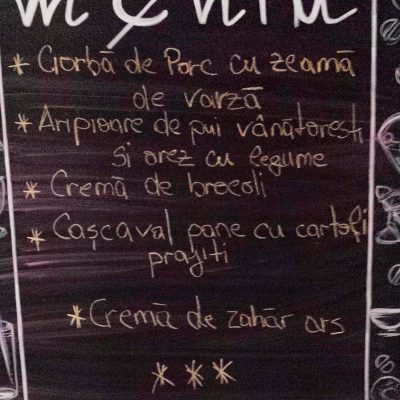 meniu
* Ciorbă de Porc cu zeamă
de varză
* Aripioare de pui vânătorești
și orez cu legume
* Cremă de brocoli
* Cașcaval pane cu cartofi
prăjiti
* Cremă de zahăr ars
* * *